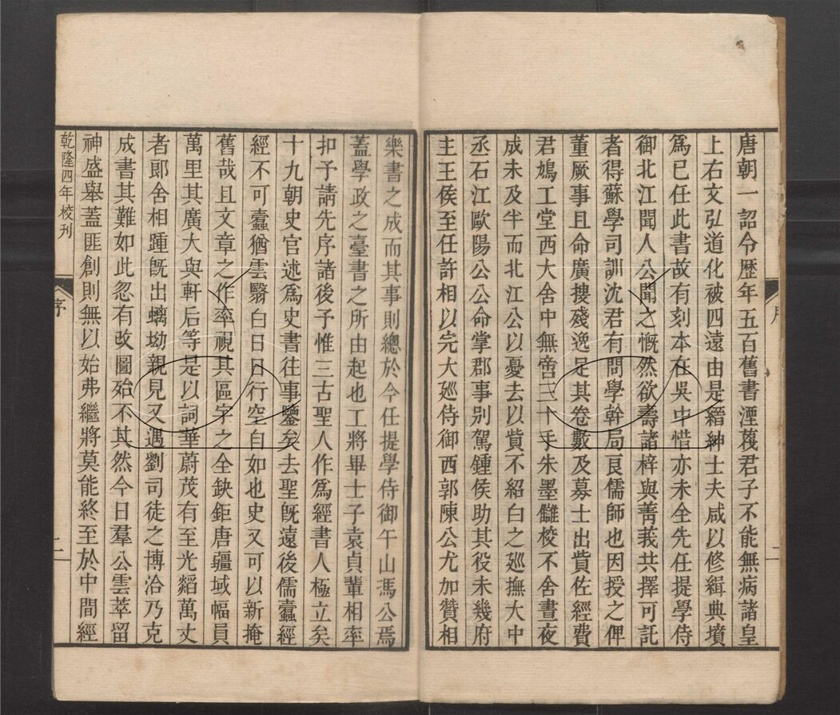 唐朝一詔令歷年五百舊書湮蔑君子不能無病諸皇
上右文弘道化被四遠由是縉紳士夫咸以修緝典墳
爲已任此書故有刻本在吳中惜亦未全先任提學侍
御北江聞人公聞之慨然欲壽諸梓與菁莪共擇可託
者得蘇學司訓沈君有問學幹局良儒師也因授之俾
董厥事且命廣搜殘逸足其卷數及募士出貲佐經費
君鳩工堂西大舍中無啻三十手朱墨讎校不舍晝夜
成未及半而北江公以憂去以貲不紹白之廵撫大中
丞石江歐陽公公命掌郡事别駕鍾侯助其役未幾府
主王侯至任許相以完大廵侍御西郭陳公尤加贊相
樂書之成而其事則總於今任提學侍御午山馮公焉
蓋學政之臺書之所由起也工將畢士子袁貞輩相率
扣予請先序諸後予惟三古聖人作爲經書人極立矣
十九朝史官述爲史書往事鑒矣去聖旣遠後儒蠹經
經不可蠹猶雲翳白日日行空自如也史又可以新掩
舊哉且文章之作率視其區宇之全缺鉅唐疆域幅員
萬里其廣大與軒后等是以詞華蔚茂有至光熖萬丈
者郎舍相踵旣出螭坳親見又遇劉司徒之博洽乃克
成書其難如此忽有改圖殆不其然今日羣公雲萃留
神盛舉蓋匪創則無以始弗繼將莫能終至於中間經
乾隆四年校刊
序
二